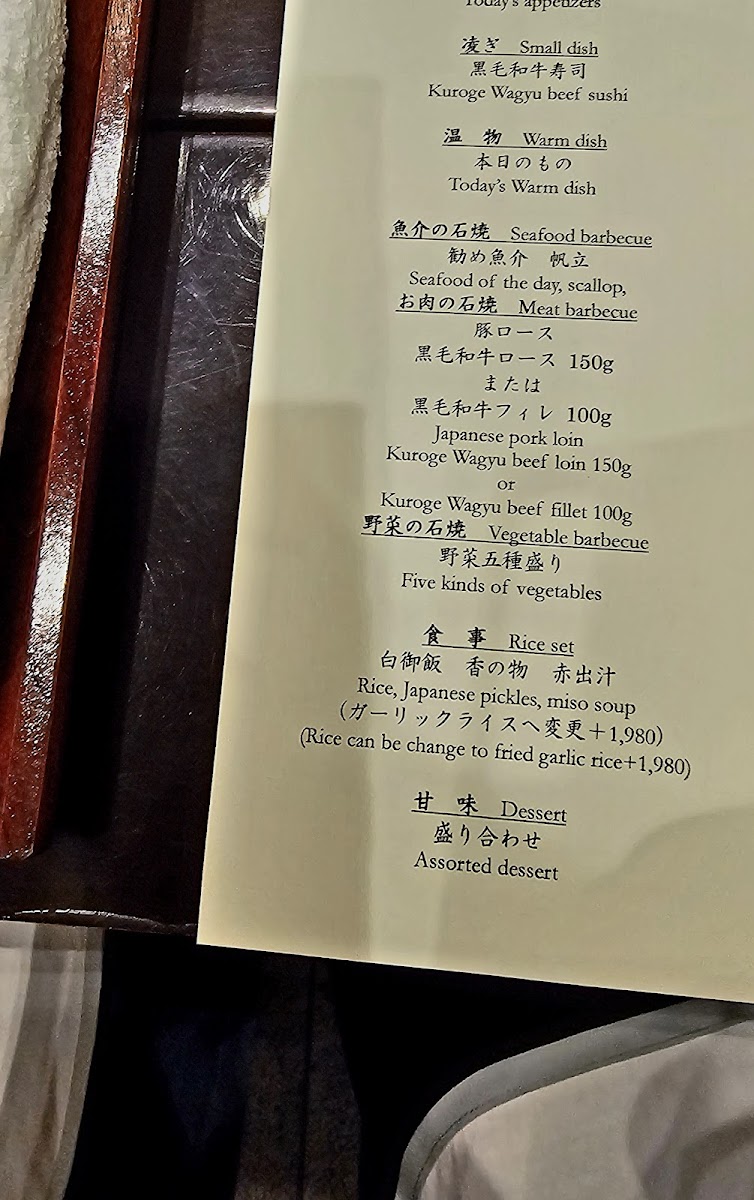 Today's appetizers
凌ぎ Small dish
黒毛和牛寿司
Kuroge Wagyu beef sushi
温 物 Warm dish
本日のもの
Today's Warm dish
魚介の石焼 Seafood barbecue
勧め魚介 帆立
Seafood of the day, scallop,
お肉の石焼 Meat barbecue
豚ロース
黒毛和牛ロース 150g
または
黒毛和牛フィレ 100g
Japanese pork loin
Kuroge Wagyu beef loin 150g
or
Kuroge Wagyu beef fillet 100g
野菜の石焼 Vegetable barbecue
野菜五種盛り
Five kinds of vegetables
食 事 Rice set
白御飯 香の物 赤出汁
Rice, Japanese pickles, miso soup
(ガーリックライスへ変更＋1,980)
(Rice can be change to fried garlic rice+1,980)
甘 味 Dessert
盛り合わせ
Assorted dessert